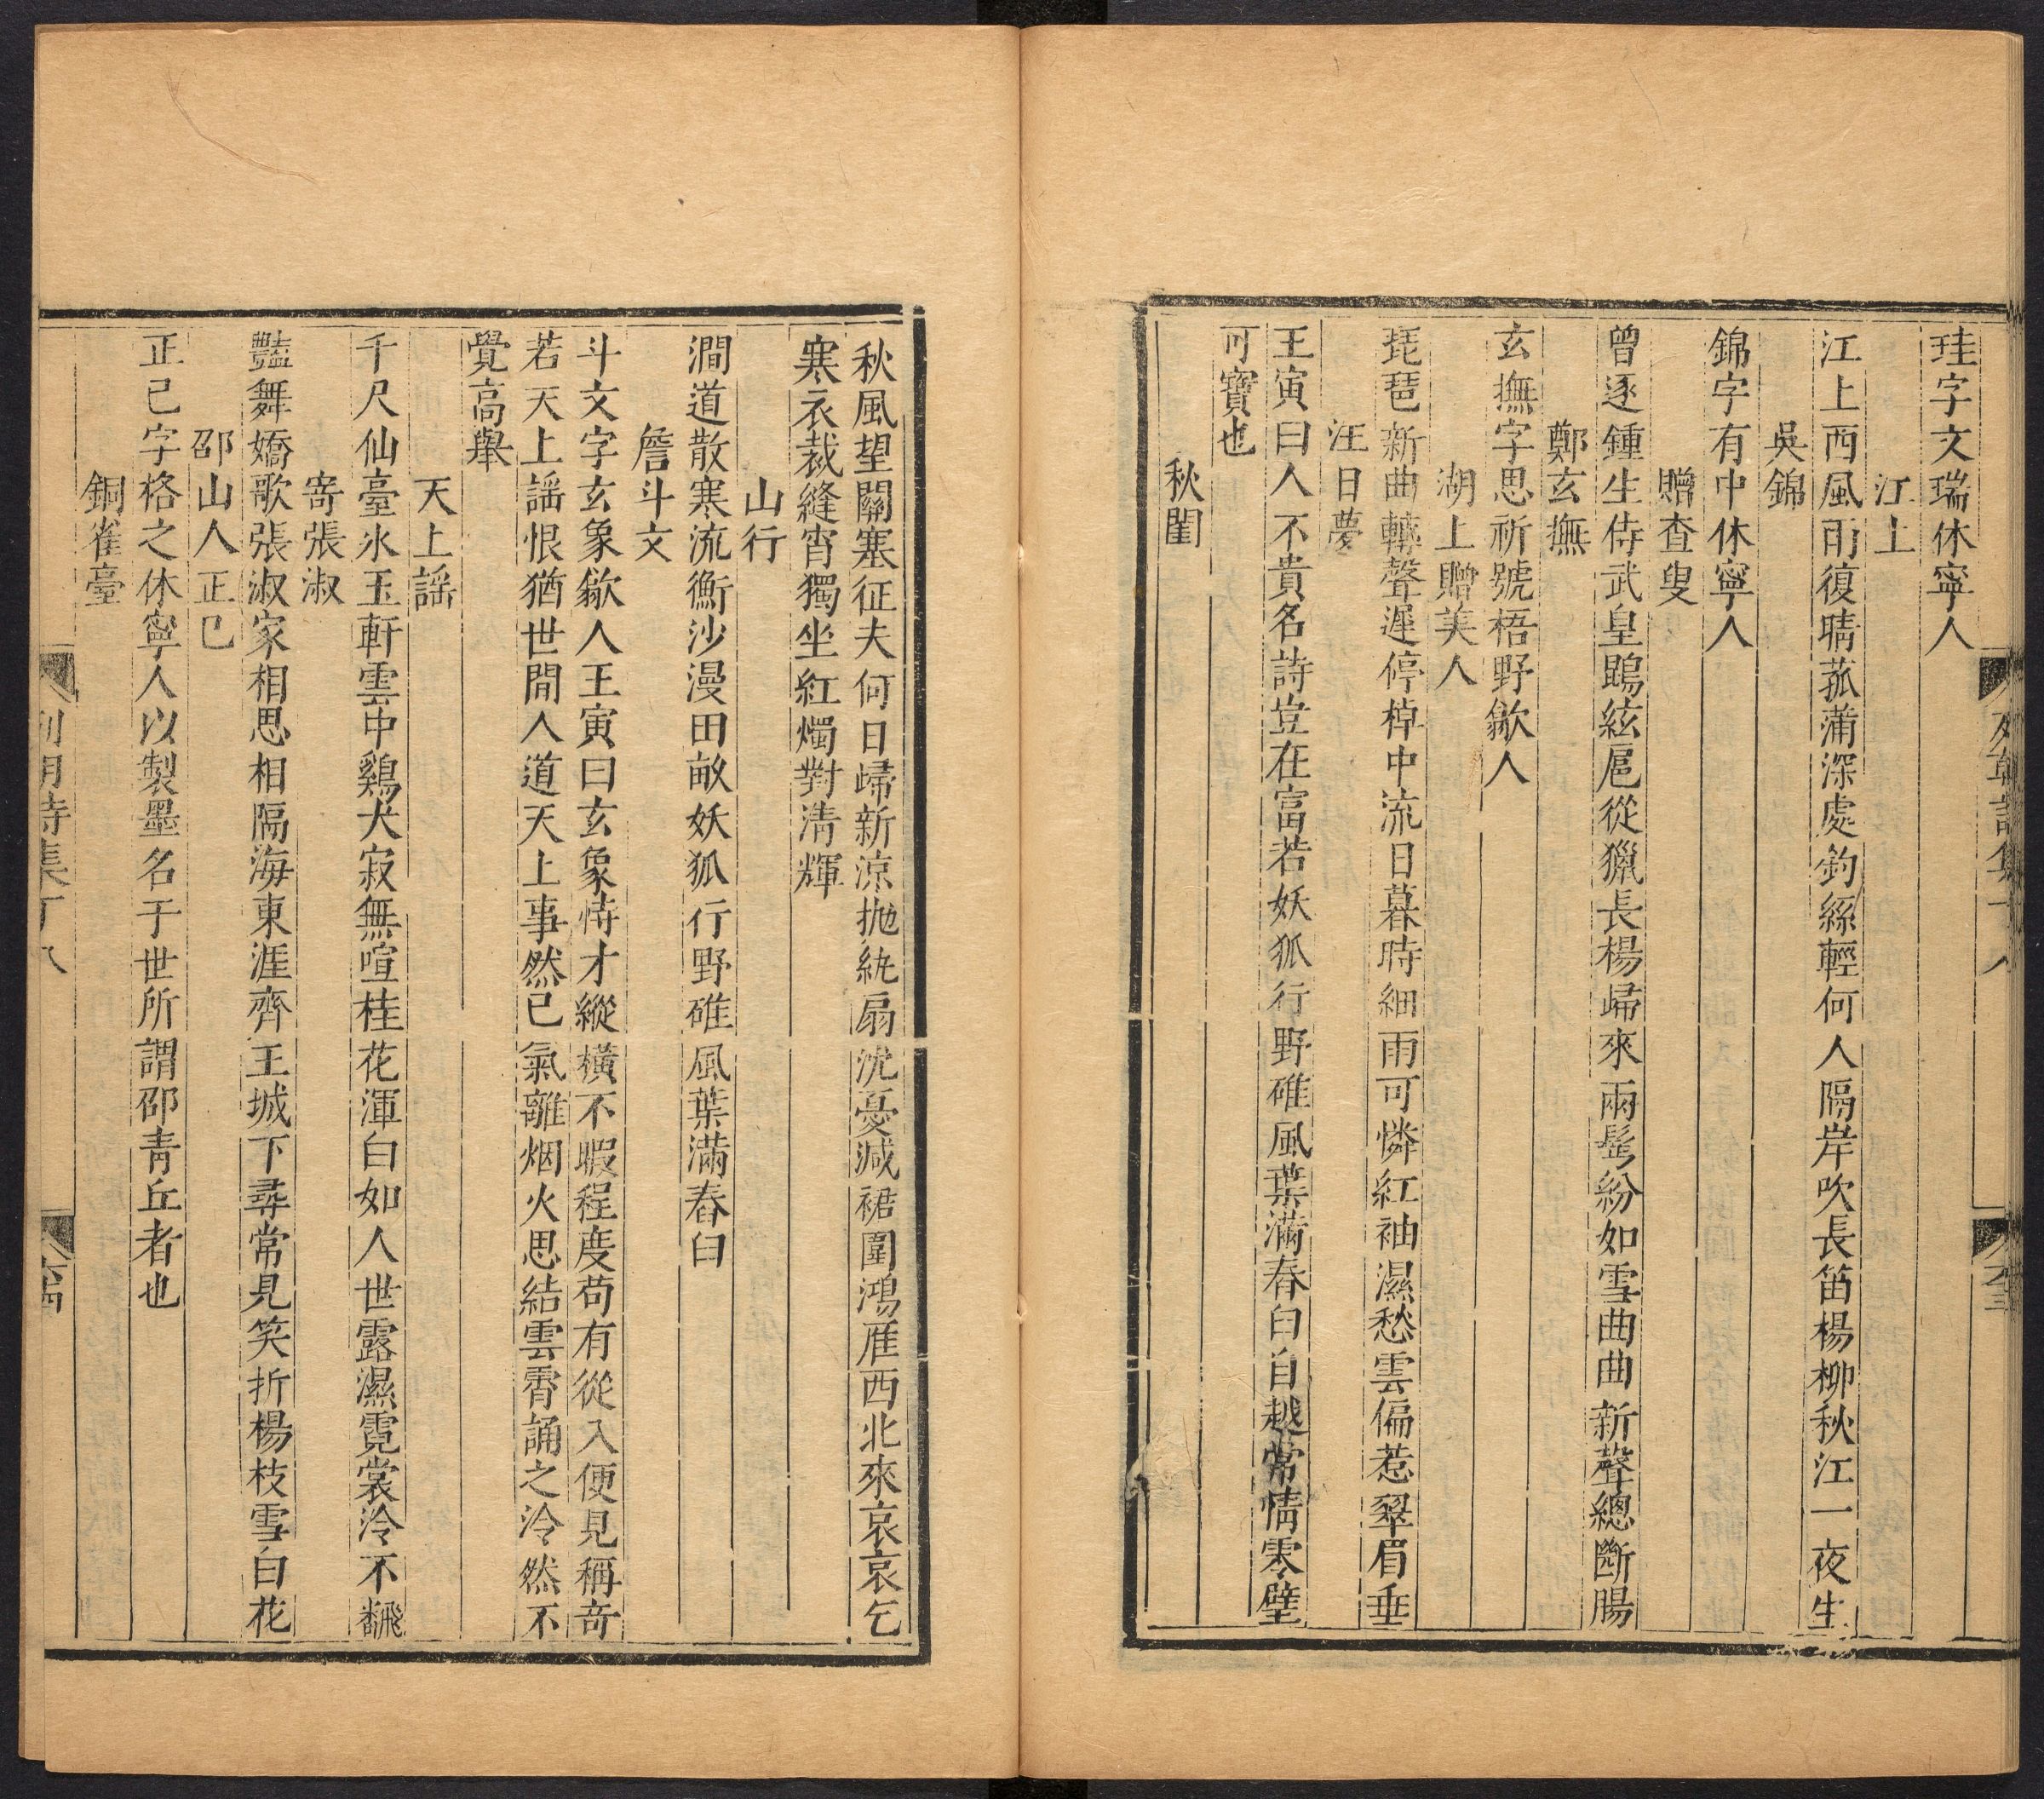 珪字文瑞休寧人
江上
江上西風雨復晴菰蒲深處釣絲輕何人隔岸吹長笛楊柳秋江一夜生
吳錦
錦字有中休寧人
贈查叟
曾逐鍾生侍武皇鵾絃扈從獵長楊歸來兩髩紛如雪曲曲新聲總斷腸
鄭玄撫
玄撫字思祈號梧野歙人
湖上贈美人
琵琶新曲轉聲遲停棹中流日暮時細雨可憐紅袖濕愁雲偏惹翠眉垂
汪日夢
王寅曰人不貴名詩豈在富若妖狐行野碓風葉滿舂臼自越常情零璧
可寶也
秋閨
秋風望關塞征夫何日歸新涼抛紈扇沈憂減裙圍鴻雁西北來哀哀乞
寒衣裁縫宵獨坐紅燭對清輝
山行
澗道散寒流衝沙漫田畝妖狐行野碓風葉滿舂臼
詹斗文
斗文字玄象歙人王寅曰玄象恃才縱橫不暇程度苟有從入便見稱奇
若天上謡恨猶世間人道天上事然已氣離烟火思結雲霄誦之泠然不
覺高舉
天上謡
千尺仙臺氷玉軒雲中鷄犬寂無喧桂花渾白如人世露濕霓裳冷不飜
寄張淑
豔舞嬌歌張淑家相思相隔海東涯齊王城下尋常見笑折楊枝雪白花
邵山人正已
正已字格之休寧人以製墨名于世所謂邵青丘者也
銅雀臺